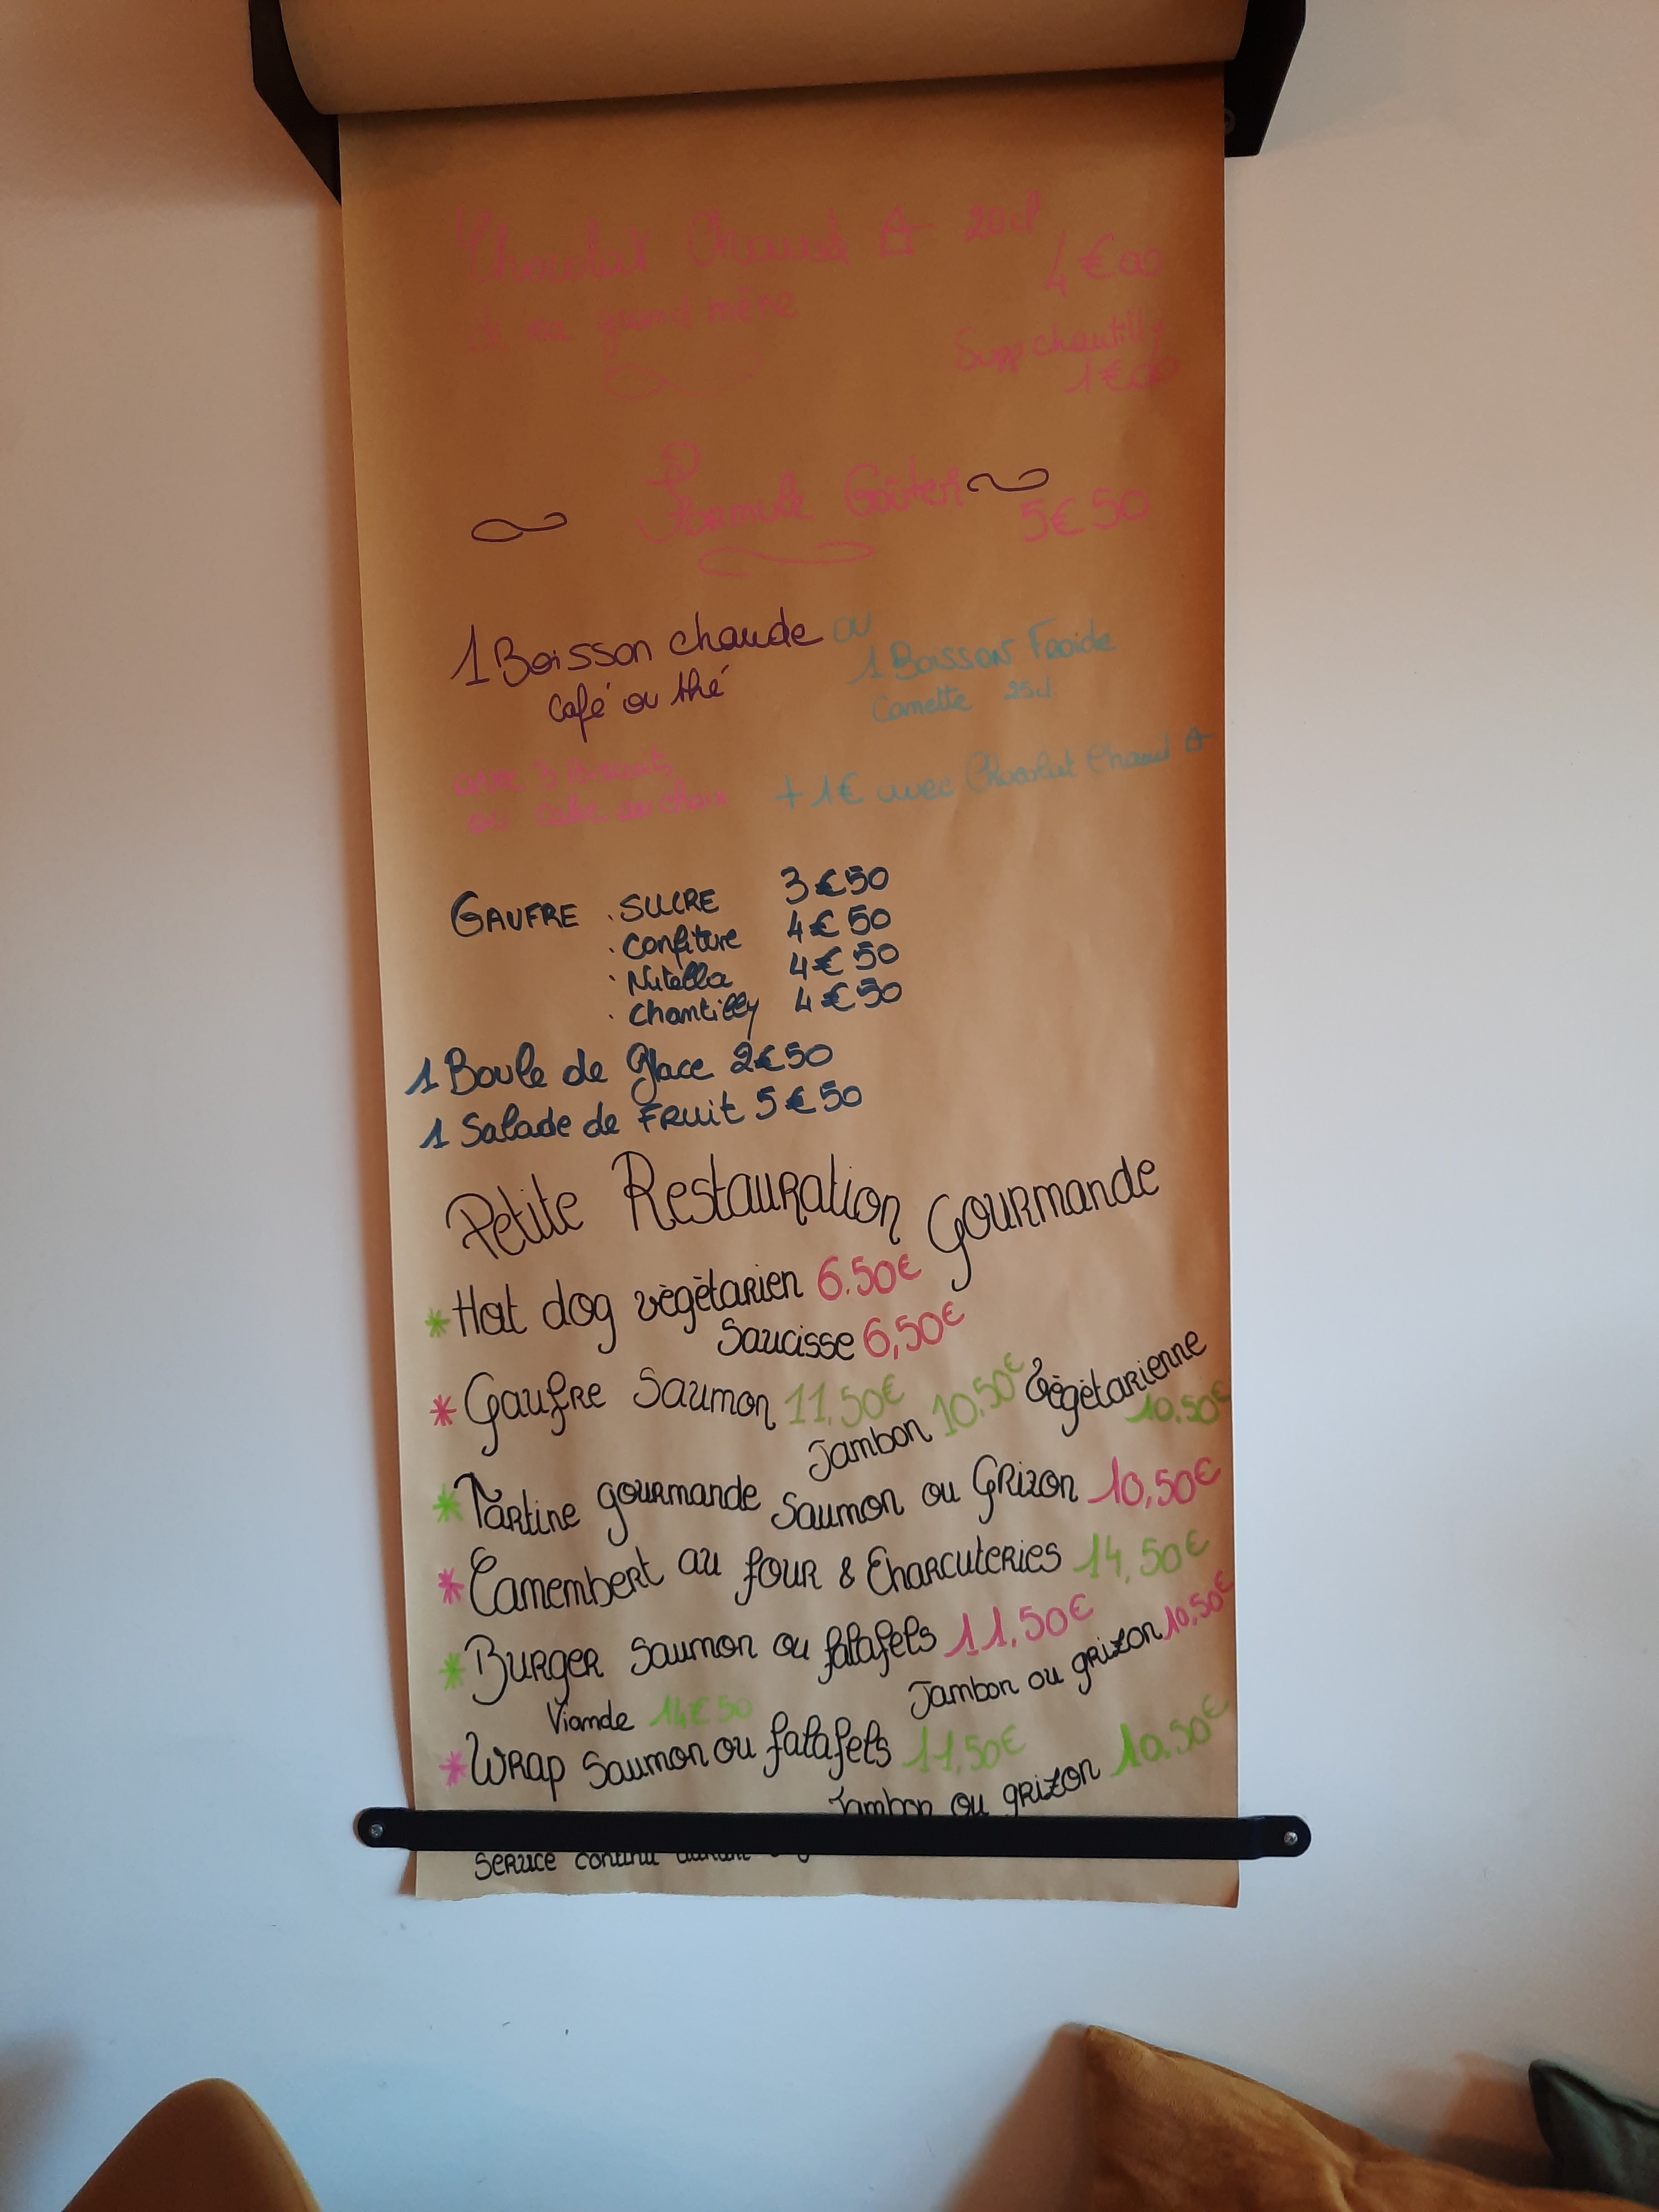 Chocolat Chaud 20cl
4€00
de ma grand mère
Supp chantilly
1€00
Formule Goûter
5€50
1 Boisson chaude ou
café ou thé
1 Boisson Froide
Canette 25cl
3 Biscuits
ou cake au choix
+1€ avec Chocolat Chaud
GAUFRE . SUCRE 3€50
. Confiture 4€50
. Nutella 4€50
. Chantilly 4€50
1 Boule de Glace 2€50
1 Salade de Fruit 5€50
Petite Restauration Gourmande
* Hot dog végétarien 6.50€
Saucisse 6,50€
* Gaufre Saumon 11,50€
Jambon 10,50€ Végétarienne
10,50€
* Tartine gourmande Saumon ou Grizon 10,50€
* Camembert au four & Charcuteries 14,50€
* Burger Saumon ou falafels 11,50€
Jambon ou grizon 10,50€
Viande 14€50
* Wrap Saumon ou falafels 11,50€
Jambon ou grizon 10.50€
Service continu